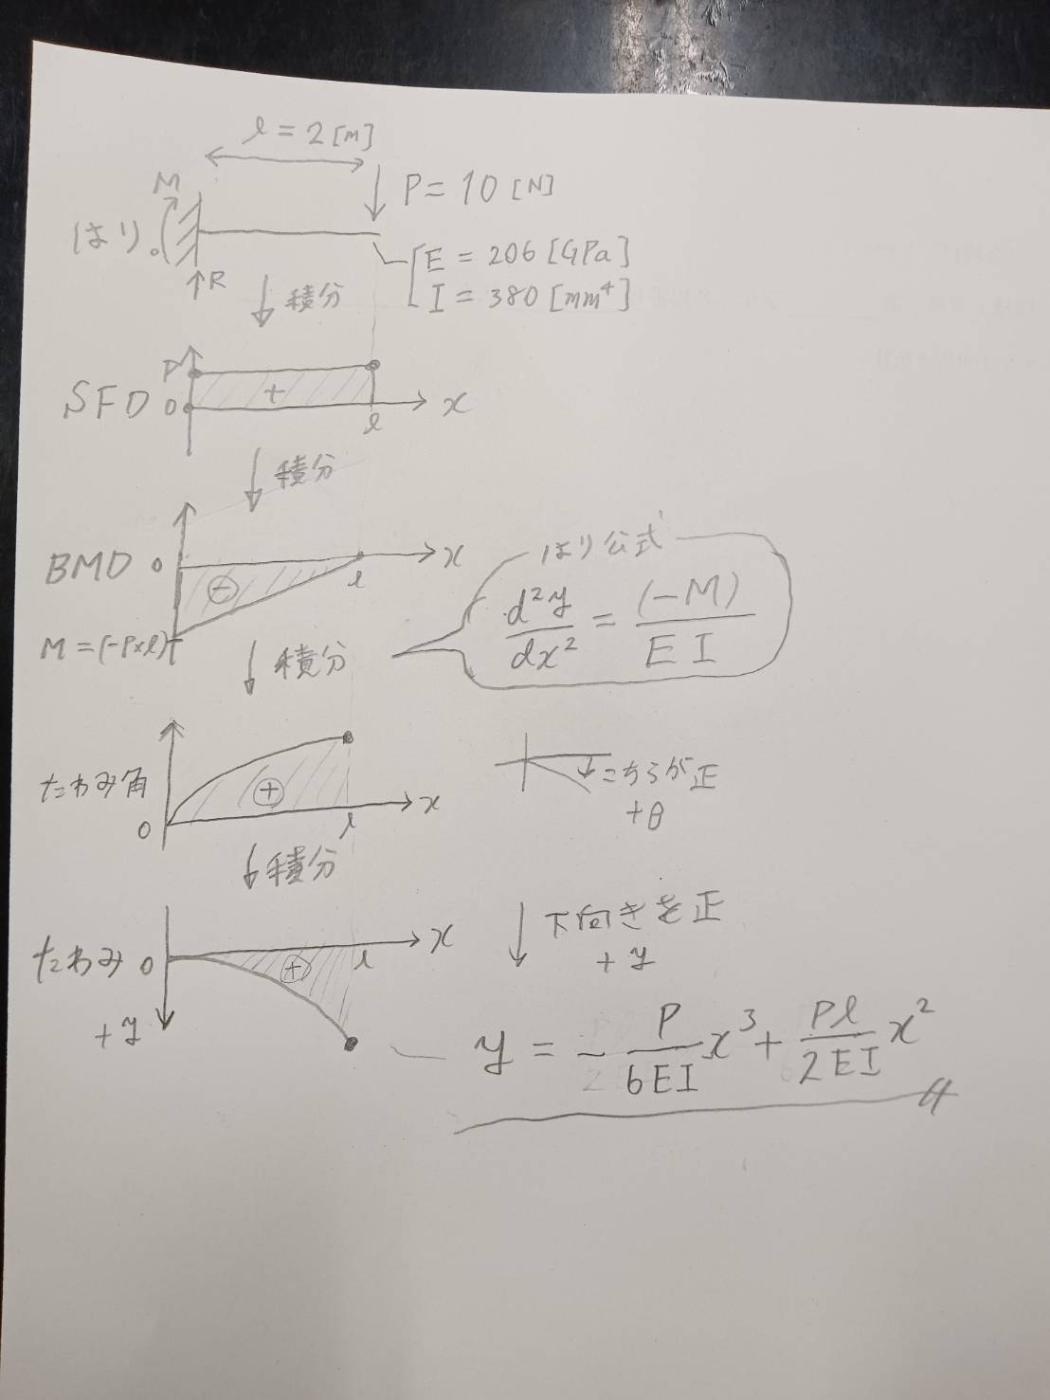 l = 2 [m]
M
P = 10 [N]
はり。
R
E = 206 [GPa]
I = 380 [mm⁴]
積分
P
SFD 0 + x
l
積分
BMD 0 x
⊖ l
M = (-P×l)
はり公式
d²y/dx² = (-M)/EI
積分
たわみ角 ⊕ x
0 l
こちらが正
+θ
積分
たわみ 0 ⊕ l x
+y
下向きを正
+y
y = - P/6EI x³ + Pl/2EI x²